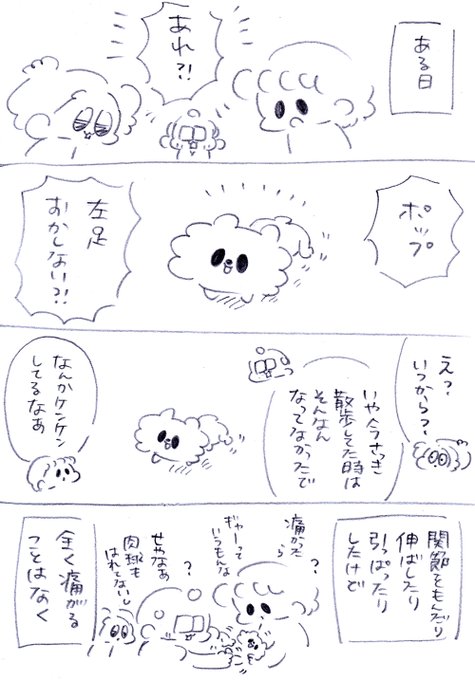 ある日
あれ?!
ポップ
左足
おかしない?!
え?
いつから?
いや今さっき
散歩してた時は
そんなん
なってなかったで
なんかケンケン
してるなあ
関節をもんだり
伸ばしたり
引っぱったり
したけど
?
痛かったら
ぎゃーって
いうもんな
?
せやなあ
肉球も
はれてないし
全く痛がる
ことはなく